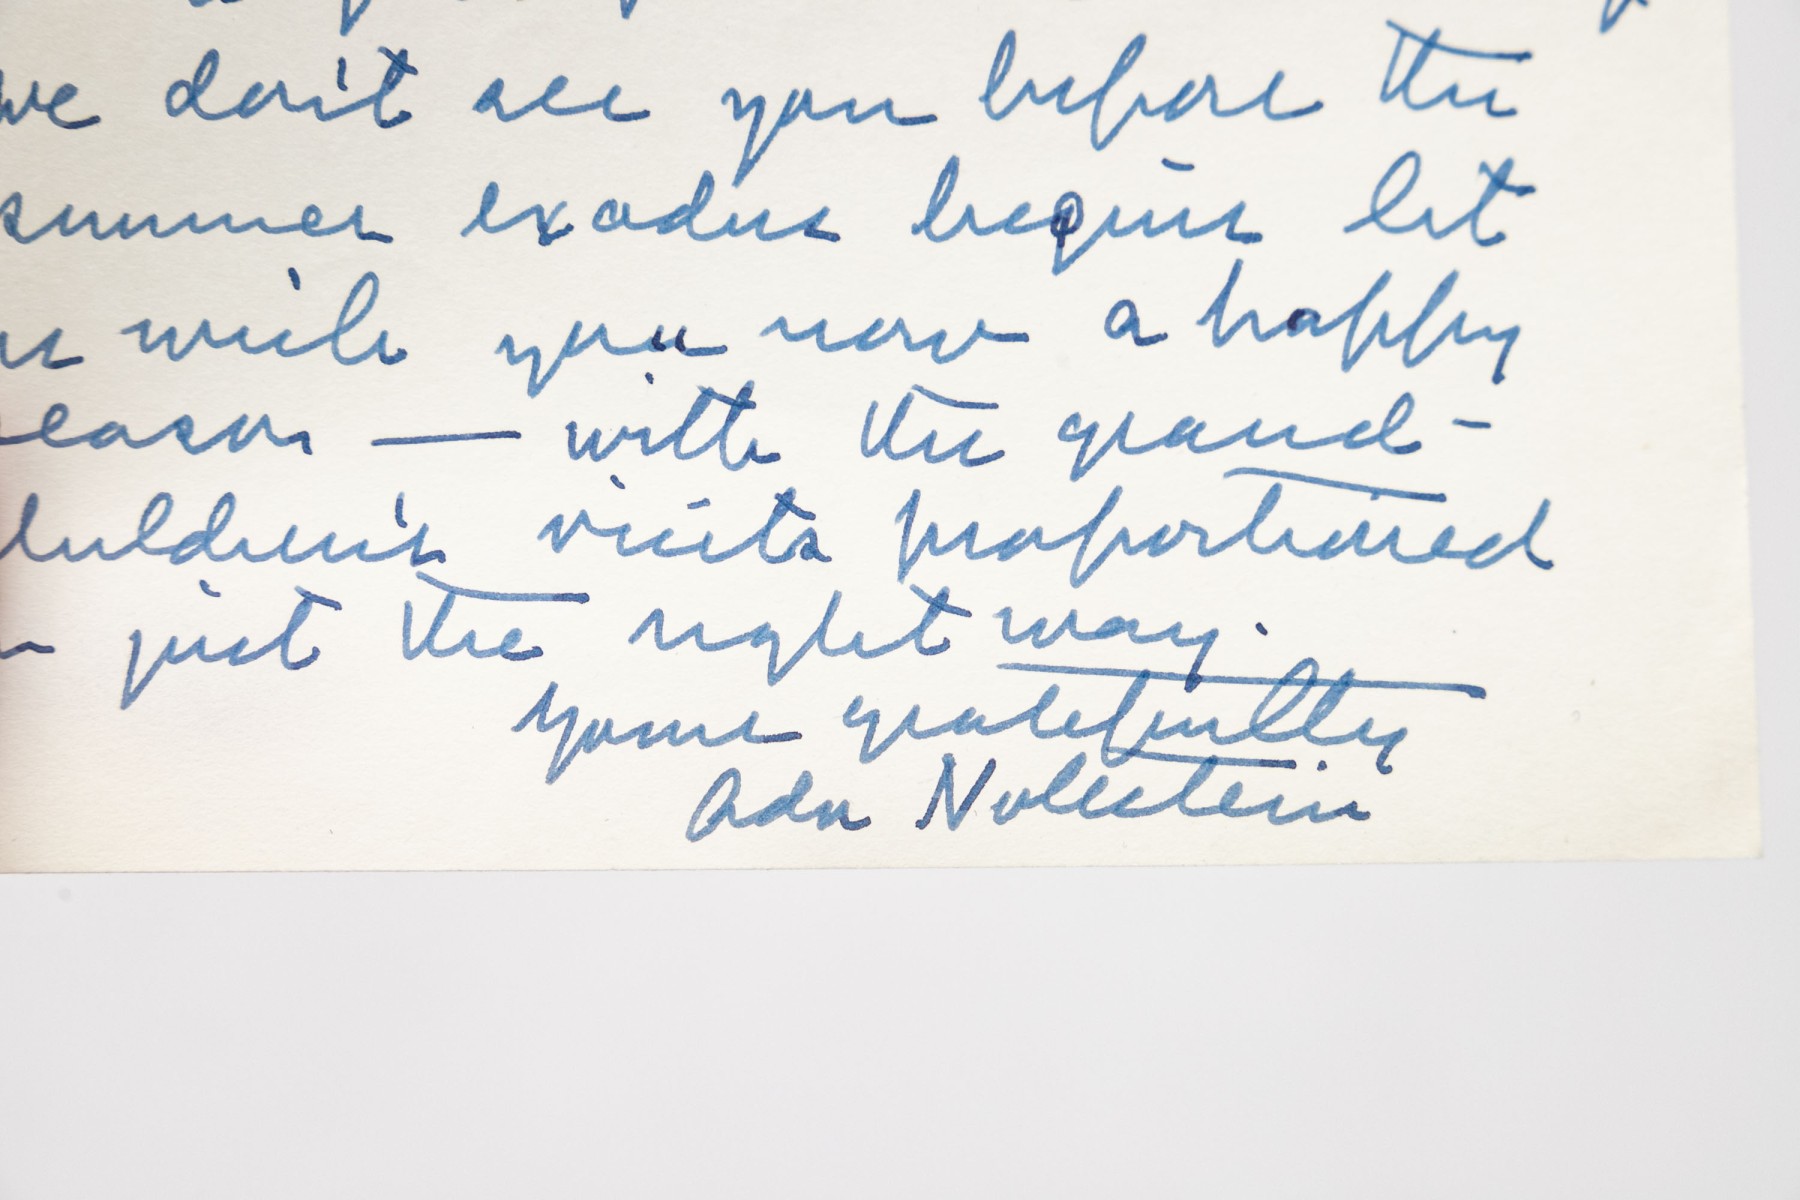 we don't see you before the
summer exodus begins let
us wish you now a happy
season — with the grand-
children's visits proportioned
in just the right way.
yours gratefully
Ada